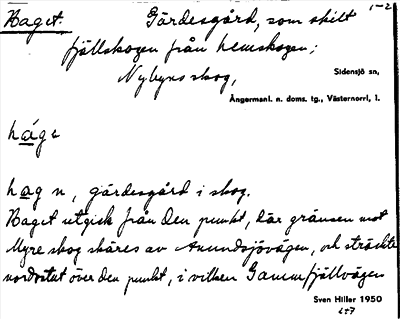 Haget. Gärdesgård, som skilt 1-2
fjällskogen från hemskogen;
Nybyns skog,
Sidensjö sn,
Ångermanl. n. doms. tg., Västernorrl. l.
háge
hag n, gärdesgård i skog.
Haget utgick från den punkt, där gränsen mot
Myre skog skäres av Anundsjövägen, och sträckte
nordostut över den punkt, i vilken Gammfjällvägen
Sven Hiller 1950